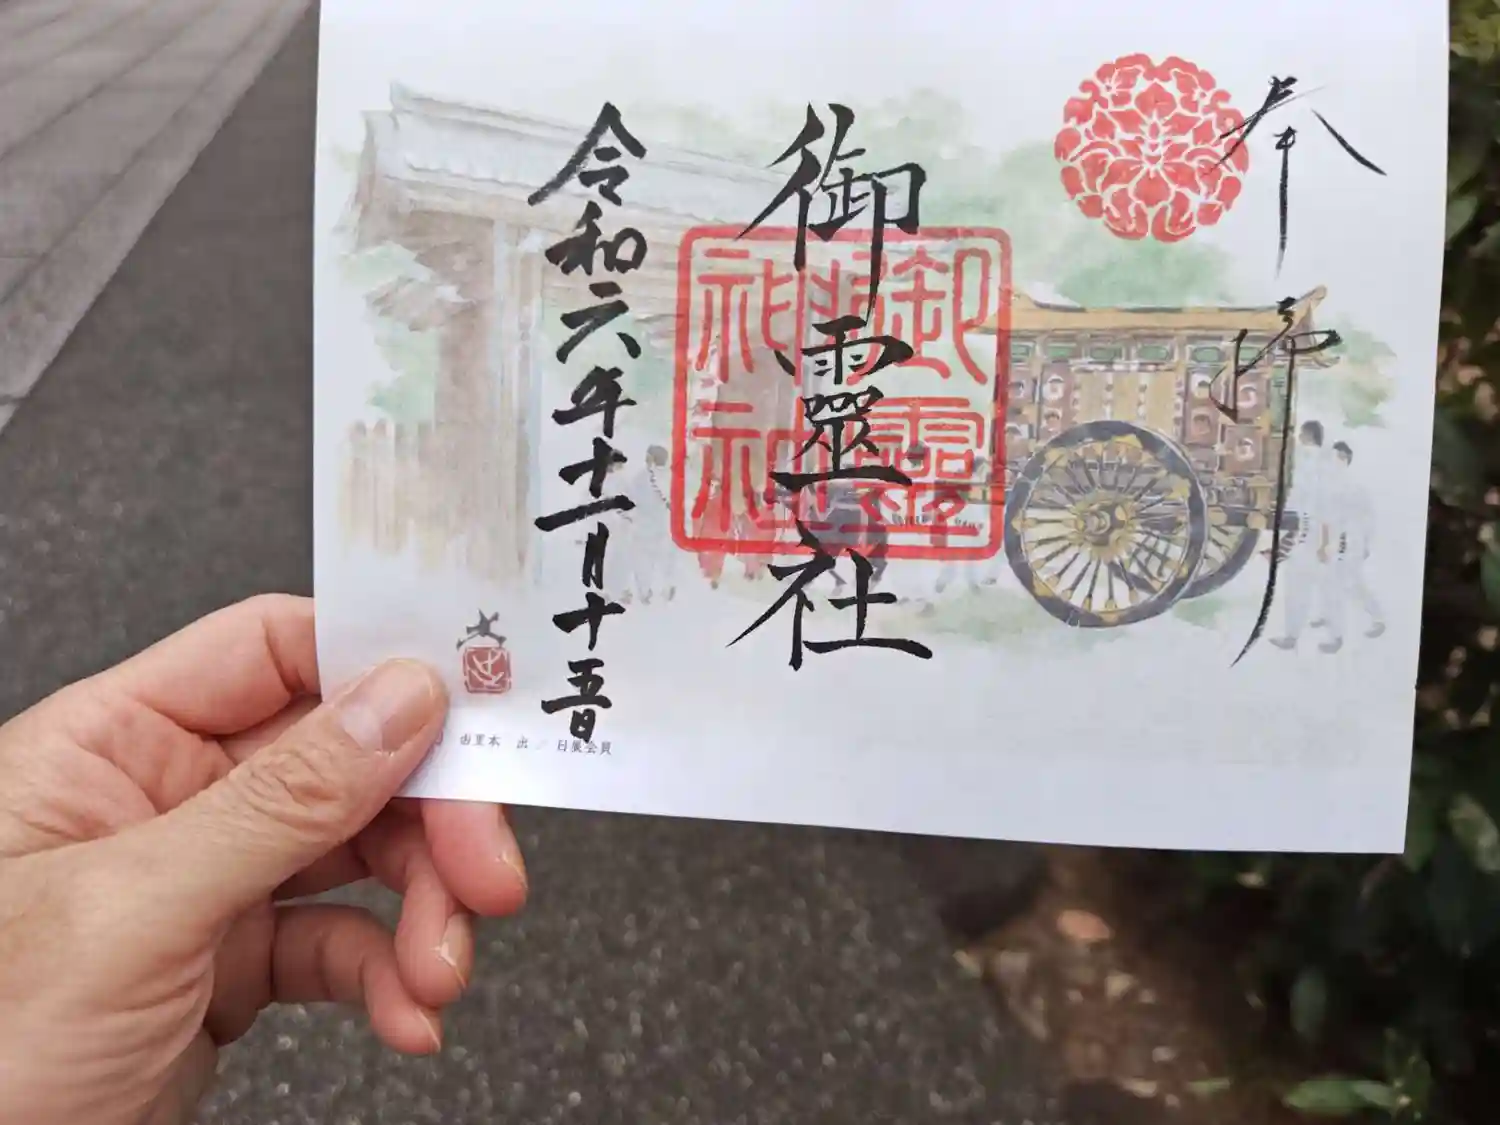 奉拝
御靈社
御靈神社
令和六年十一月十五日
由里本 出 / 日展会員